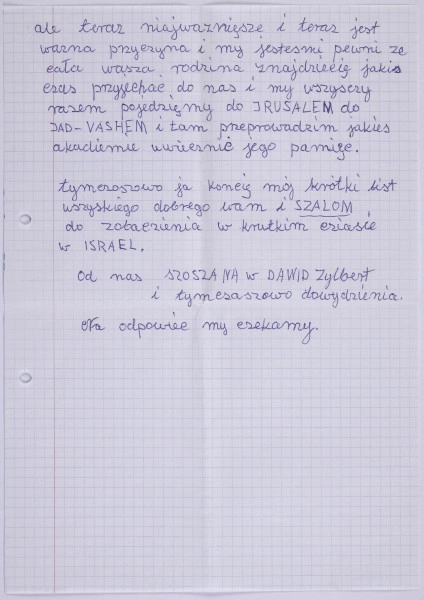 ale teraz niajważniejsze i teraz jest
ważna przyczyna i my jesteśmi pewni że
cała wasza rodzina znajdziecię jakiś
czas przyjechać do nas i my wszyscy
razem pojedzięmy do JRUSALEM do
JAD-VASHEM i tam preprowadzim jakieś
akademie uwiernić jego pamięc.
tymczasowo ja kończę mój krótki list
wszyskiego dobrego wam i SZALOM
do zobaczienia w krutkim cziasie
w ISRAEL.
Od nas SZOSZANA w DAWID Zylbert
i tymczasowo dowydzienia.
Na odpowiec my czekamy.